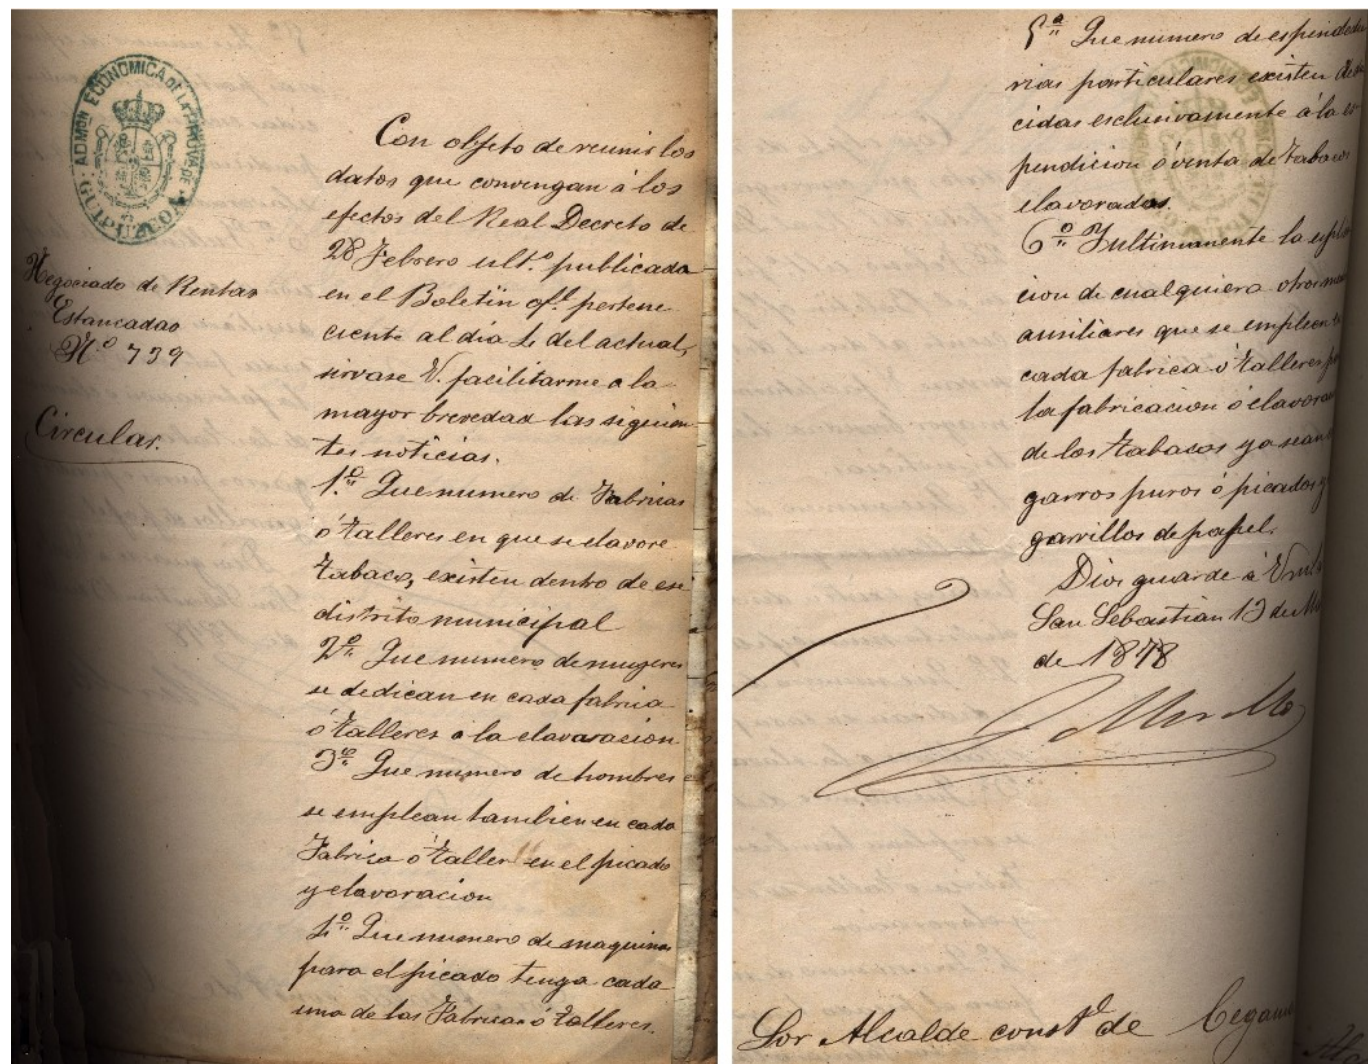 ADMON ECONOMICA DE LA PROVINCIA DE
GUIPUZCOA
Negociado de Rentas
Estancadas
N.º 739
Circular.
Con objeto de reunir los
datos que convengan á los
efectos del Real Decreto de
28 Febrero ult.º publicada
en el Boletin ofl. pertene
ciente al dia 4 del actual,
sirvase V. facilitarme a la
mayor brevedad las siguien
tes noticias.
1.º Que numero de Fabricas
ó talleres en que se elavore
tabaco, existen dentro de ese
distrito municipal
2.º Que numero de mugeres
se dedican en cada fabrica
ó talleres a la elavaracion
3.º Que numero de hombres
se emplean tambien en cada
Fabrica ó taller en el picado
y elavoracion
4.º Que numero de maquinas
para el picado tenga cada
una de las Fabricas ó talleres.
5.ª Que numero de espendedu
rias particulares existen dedi
cidas esclusivamente á la es
pendicion ó venta de tabacos
elavorados.
6.º Y ultimamente la espli
cion de cualquiera otros
ausiliares que se empleen
cada fabrica ó talleres
la fabricacion ó elavora
de los tabacos ya sean
garros puros ó picados y
garrillos de papel.
Dios guarde á V. m.
San Sebastian 13 de M
de 1878
Sor Alcalde const.l de Cegama